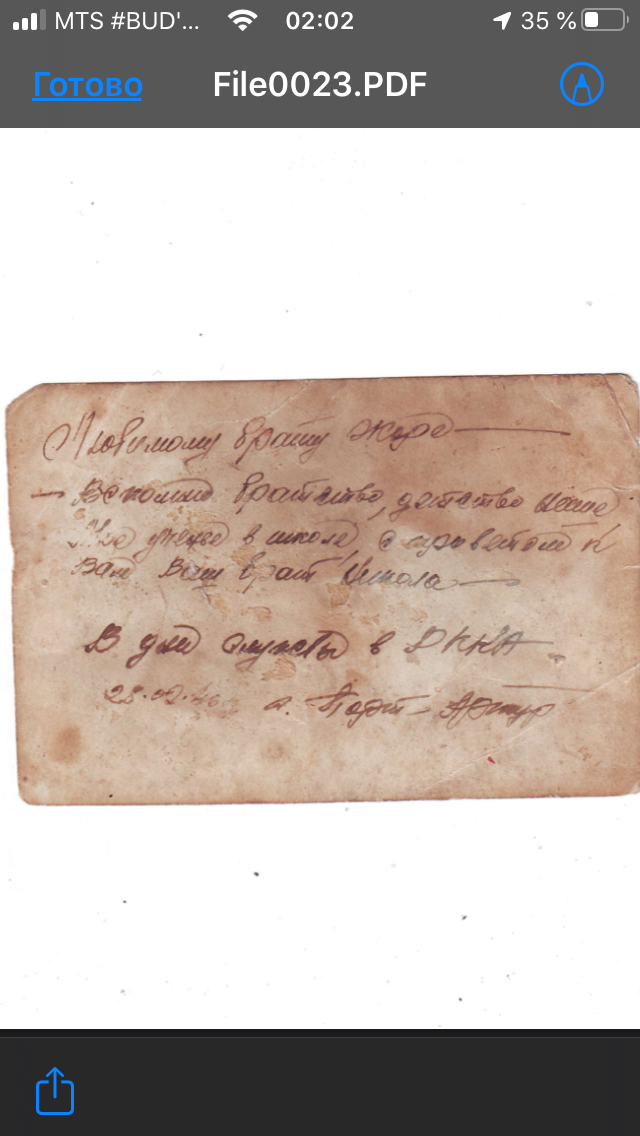 MTS #BUD'...
02:02
35 %
Готово
File0023.PDF
Любимому брату Жоре
Вспомни братство, детство наше
учение в школе, с приветом к
Вам Ваш брат Никола
В дни службы в РККА
28.02.40 г. Порт-Артур